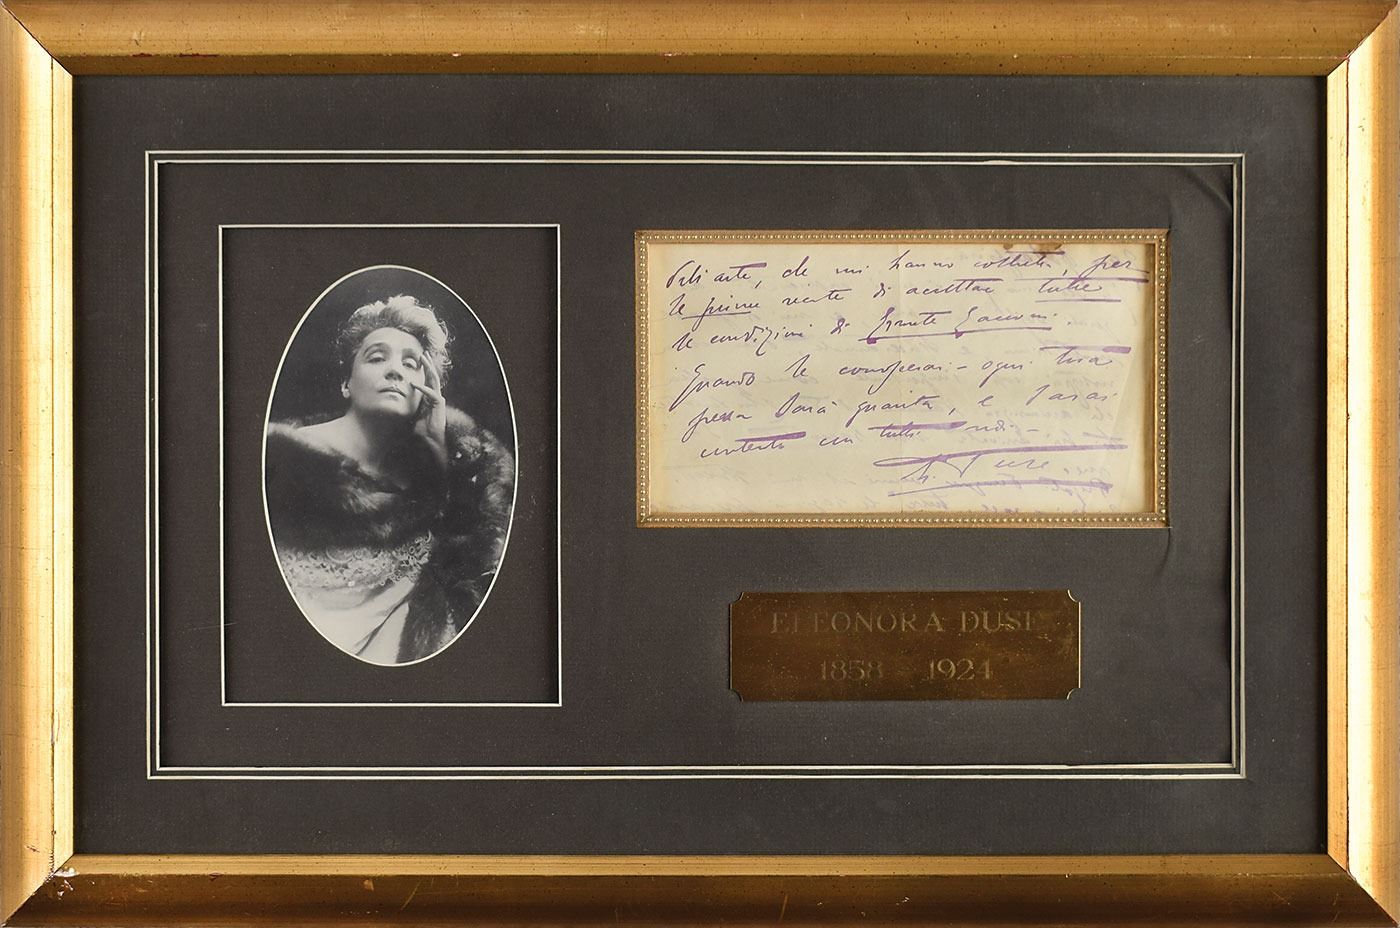 arte, che mi hanno costretta, per
le prime recite di accettar tutte
le condizioni di
Quando le conoscerai - ogni tua
pena sarà guarita, e sarai
contento con tutti noi -
E. Duse
ELEONORA DUSE
1858 - 1924